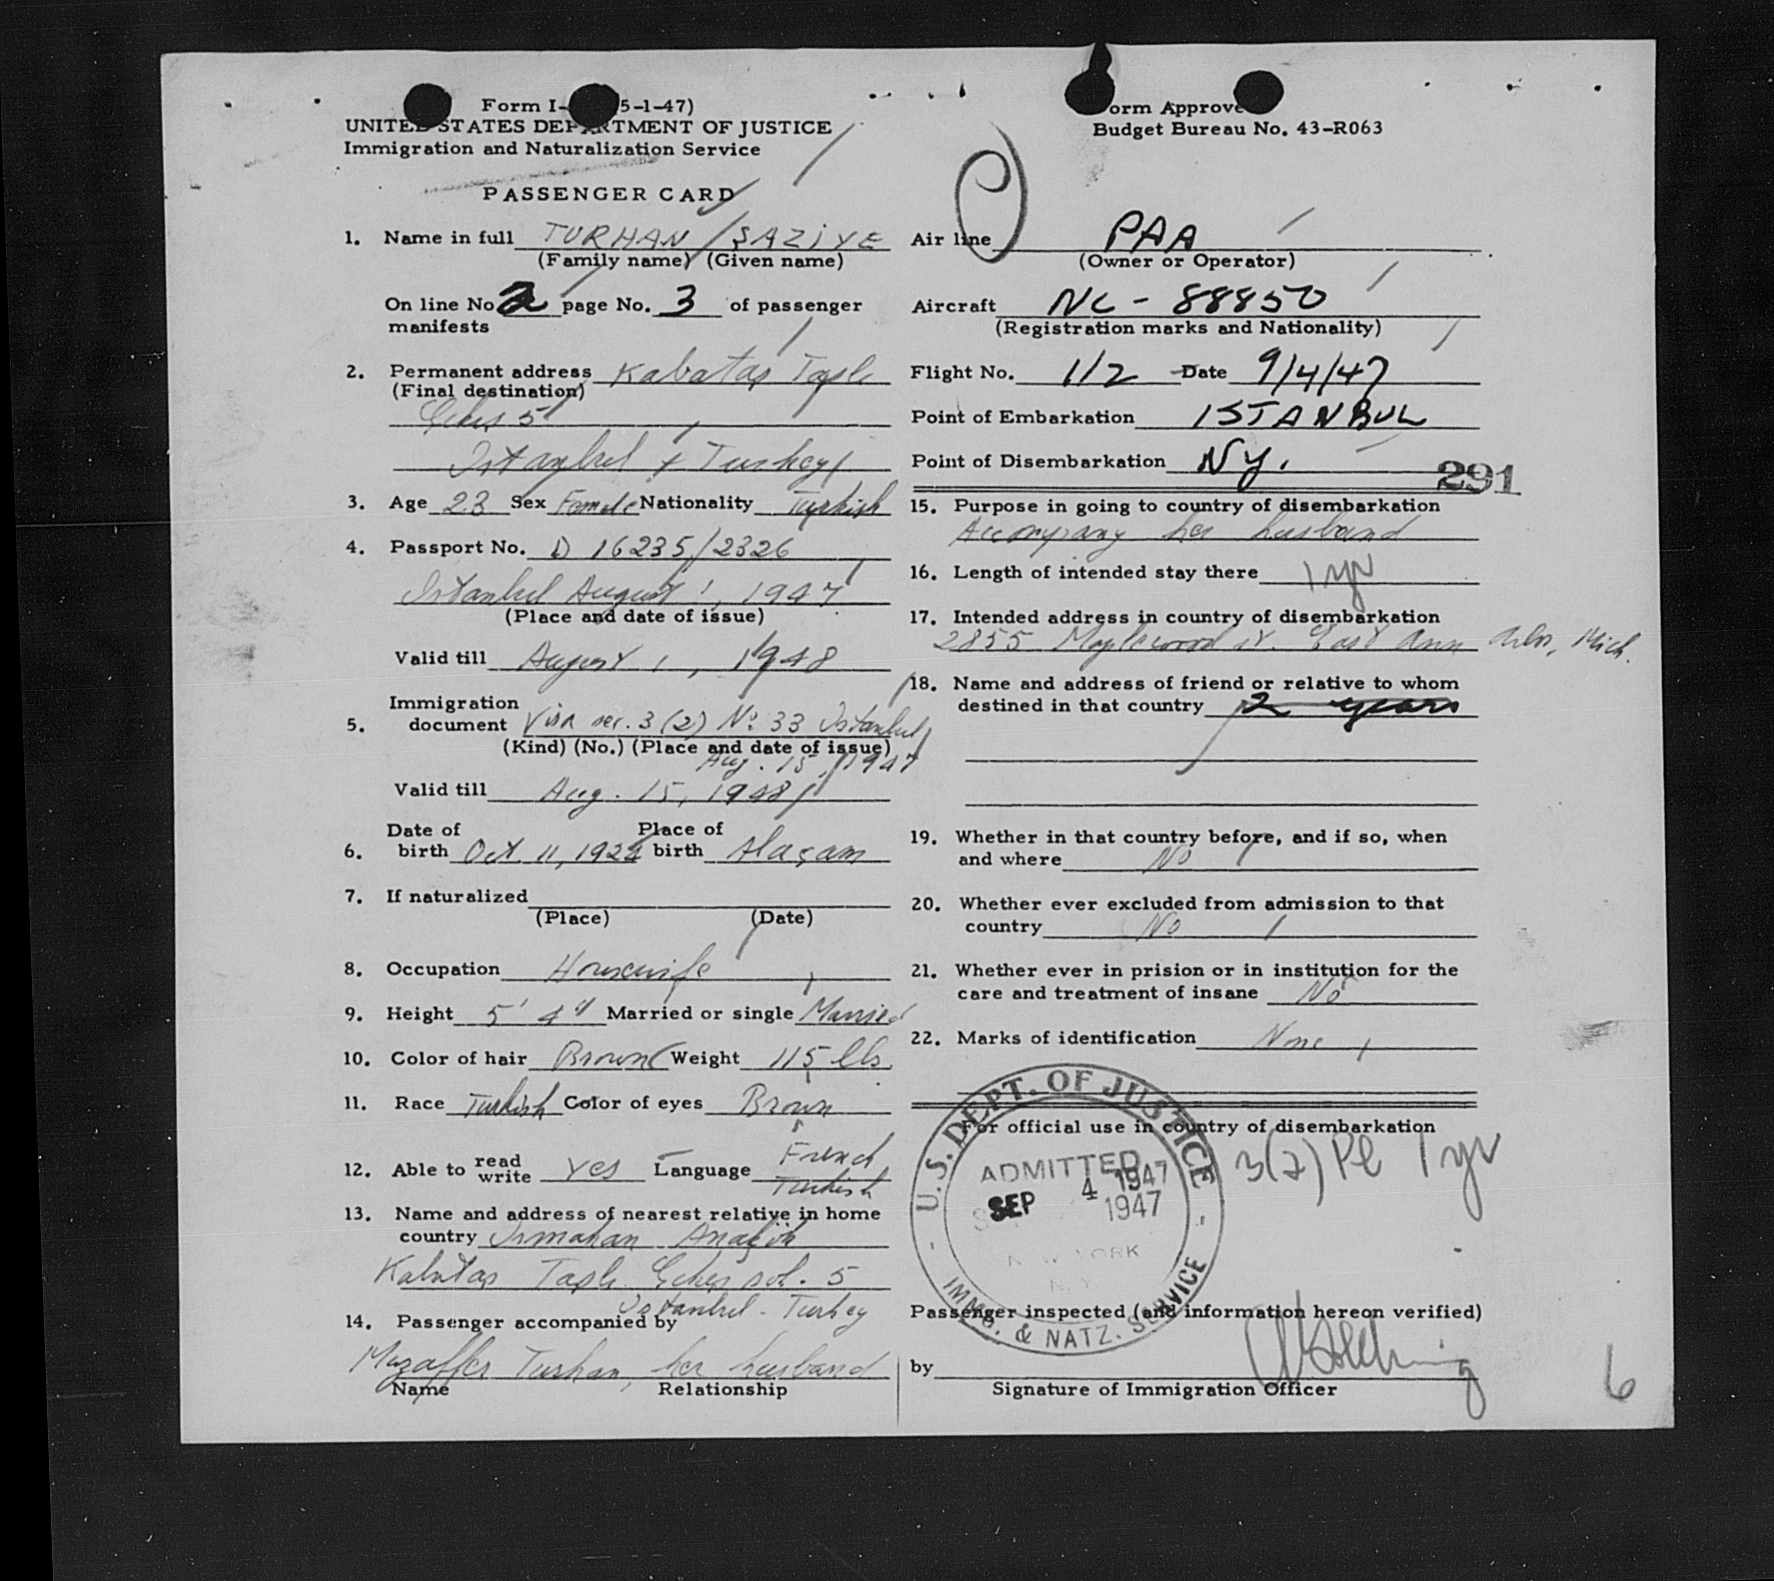 Form I- 5-1-47)
UNITED STATES DEPARTMENT OF JUSTICE
Immigration and Naturalization Service
PASSENGER CARD
1. Name in full TURHAN / ŞAZİYE
(Family name) (Given name)
On line No 2 page No. 3 of passenger
manifests
2. Permanent address Kabataş Taşlı
(Final destination)
5
Istanbul Turkey
3. Age 23 Sex Female Nationality Turkish
4. Passport No. D 16235/2326
Istanbul August 1, 1947
(Place and date of issue)
Valid till August 1, 1948
Immigration
5. document Visa sec. 3 (2) No. 33 Istanbul
(Kind) (No.) (Place and date of issue)
Aug. 15, 1947
Valid till Aug. 15, 1948
Date of Place of
6. birth Oct 11, 192 birth Alaçam
7. If naturalized
(Place) (Date)
8. Occupation Housewife
9. Height 5' 4" Married or single Married
10. Color of hair Brown Weight 115 lbs.
11. Race Turkish Color of eyes Brown
French
12. Able to read write Yes Language
Turkish
13. Name and address of nearest relative in home
country
Kabataş Taşlı sok. 5
Istanbul - Turkey
14. Passenger accompanied by
Muzaffer Turhan, her husband
Name Relationship
orm Approve
Budget Bureau No. 43-R063
Air line PAA
(Owner or Operator)
Aircraft NC - 88850
(Registration marks and Nationality)
Flight No. 112 Date 9/4/47
Point of Embarkation ISTANBUL
Point of Disembarkation NY.
291
15. Purpose in going to country of disembarkation
Accompany her husband
16. Length of intended stay there 1 yr
17. Intended address in country of disembarkation
2855 Maplewood st. East Ann Arbor, Mich.
18. Name and address of friend or relative to whom
destined in that country 2 years
19. Whether in that country before, and if so, when
and where No
20. Whether ever excluded from admission to that
country No
21. Whether ever in prision or in institution for the
care and treatment of insane No
22. Marks of identification None
For official use in country of disembarkation
3(2) Pl 1 yr
U.S. DEPT. OF JUSTICE
ADMITTED
SEP 4 1947
1947
NEW YORK
N.Y.
IMMG. & NATZ. SERVICE
Passenger inspected (and information hereon verified)
by
Signature of Immigration Officer
6